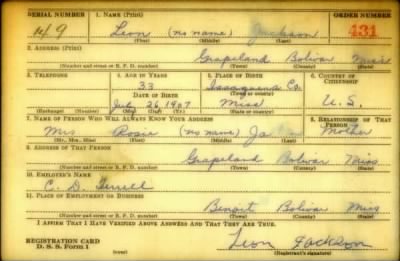 SERIAL NUMBER 1. NAME (Print) ORDER NUMBER
149 Leon (no name) Jackson 431
(First) (Middle) (Last)
2. ADDRESS (Print)
Grapeland Bolivar Miss
(Number and street or R. F. D. number) (Town) (County) (State)
3. TELEPHONE 4. AGE IN YEARS 5. PLACE OF BIRTH 6. COUNTRY OF CITIZENSHIP
33 Issaquena Co.
DATE OF BIRTH (Town or county)
July 26 1907 Miss U.S.
(Exchange) (Number) (Mo.) (Day) (Yr.) (State or country)
7. NAME OF PERSON WHO WILL ALWAYS KNOW YOUR ADDRESS 8. RELATIONSHIP OF THAT PERSON
Mrs Rosie (no name) Mother
(Mr., Mrs., Miss) (First) (Middle) (Last)
9. ADDRESS OF THAT PERSON
Grapeland Bolivar Miss
(Number and street or R. F. D. number) (Town) (County) (State)
10. EMPLOYER'S NAME
C. D.
11. PLACE OF EMPLOYMENT OR BUSINESS
Benoit Bolivar Miss
(Number and street or R. F. D. number) (Town) (County) (State)
I AFFIRM THAT I HAVE VERIFIED ABOVE ANSWERS AND THAT THEY ARE TRUE.
REGISTRATION CARD
D. S. S. Form 1 (over) Leon Jackson
(Registrant's signature)